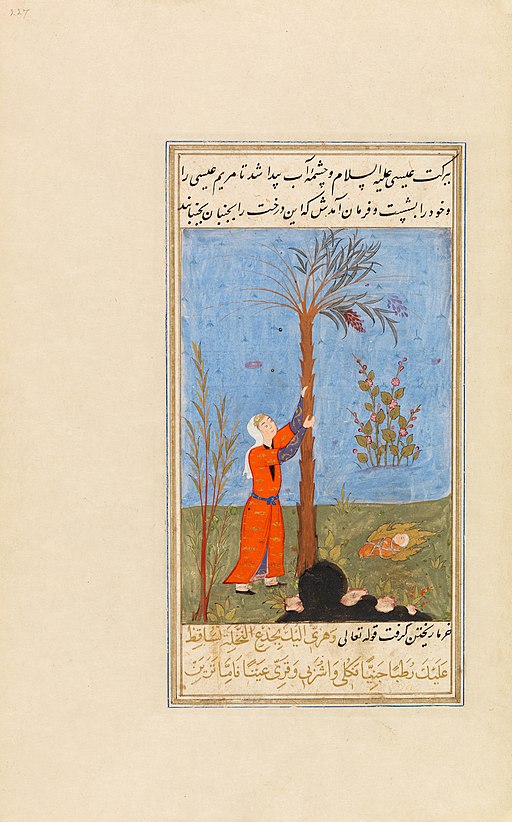 ٢٢٧
ببرکت عیسی علیه السلام و چشمۀ آب پیدا شد تا مریم عیسی را
و خود را بشست و فرمان آمدش که این درخت را بجنبان بجنبانید
خرما ریختن گرفت قوله تعالی وَهُزِّی اِلَیْكِ بِجِذْعِ النَّخْلَةِ تُسَاقِطْ
عَلَیْكِ رُطَبًا جَنِیًّا فَکُلِی وَاشْرَبِی وَقَرِّی عَیْنًا فَاِمَّا تَرَیِنَّ